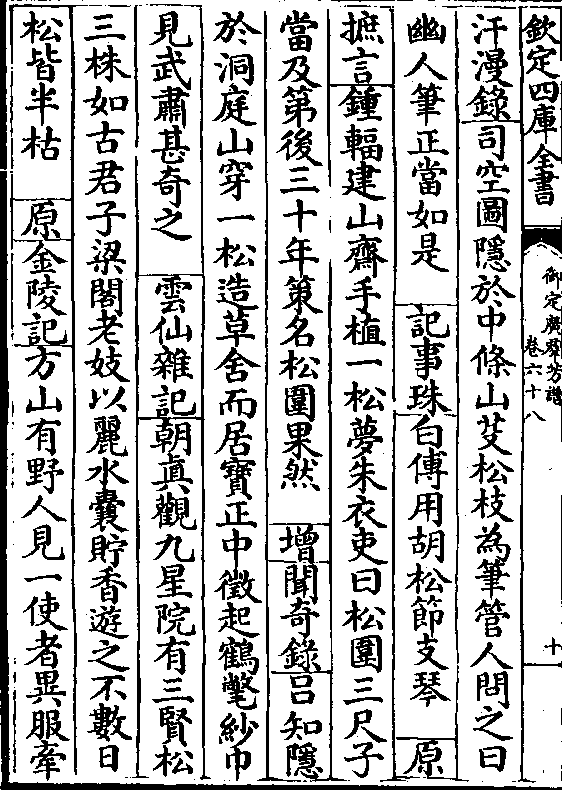 欽定四庫全書
御定廣羣芳譜
卷六十八
十
汗漫錄司空圖隱於中條山芟松枝為筆管人問之曰
幽人筆正當如是　記事珠白傅用胡松節支琴　原
摭言鍾輻建山齋手植一松夢朱衣吏曰松圍三尺子
當及第後三十年策名松圍果然　增聞奇錄吕知隱
於洞庭山穿一松造草舍而居寶正中徵起鶴氅紗巾
見武肅甚奇之　雲仙雜記朝真觀九星院有三賢松
三株如古君子梁閣老妓以麗水囊貯香遊之不數日
松皆半枯　原金陵記方山有野人見一使者異服牽